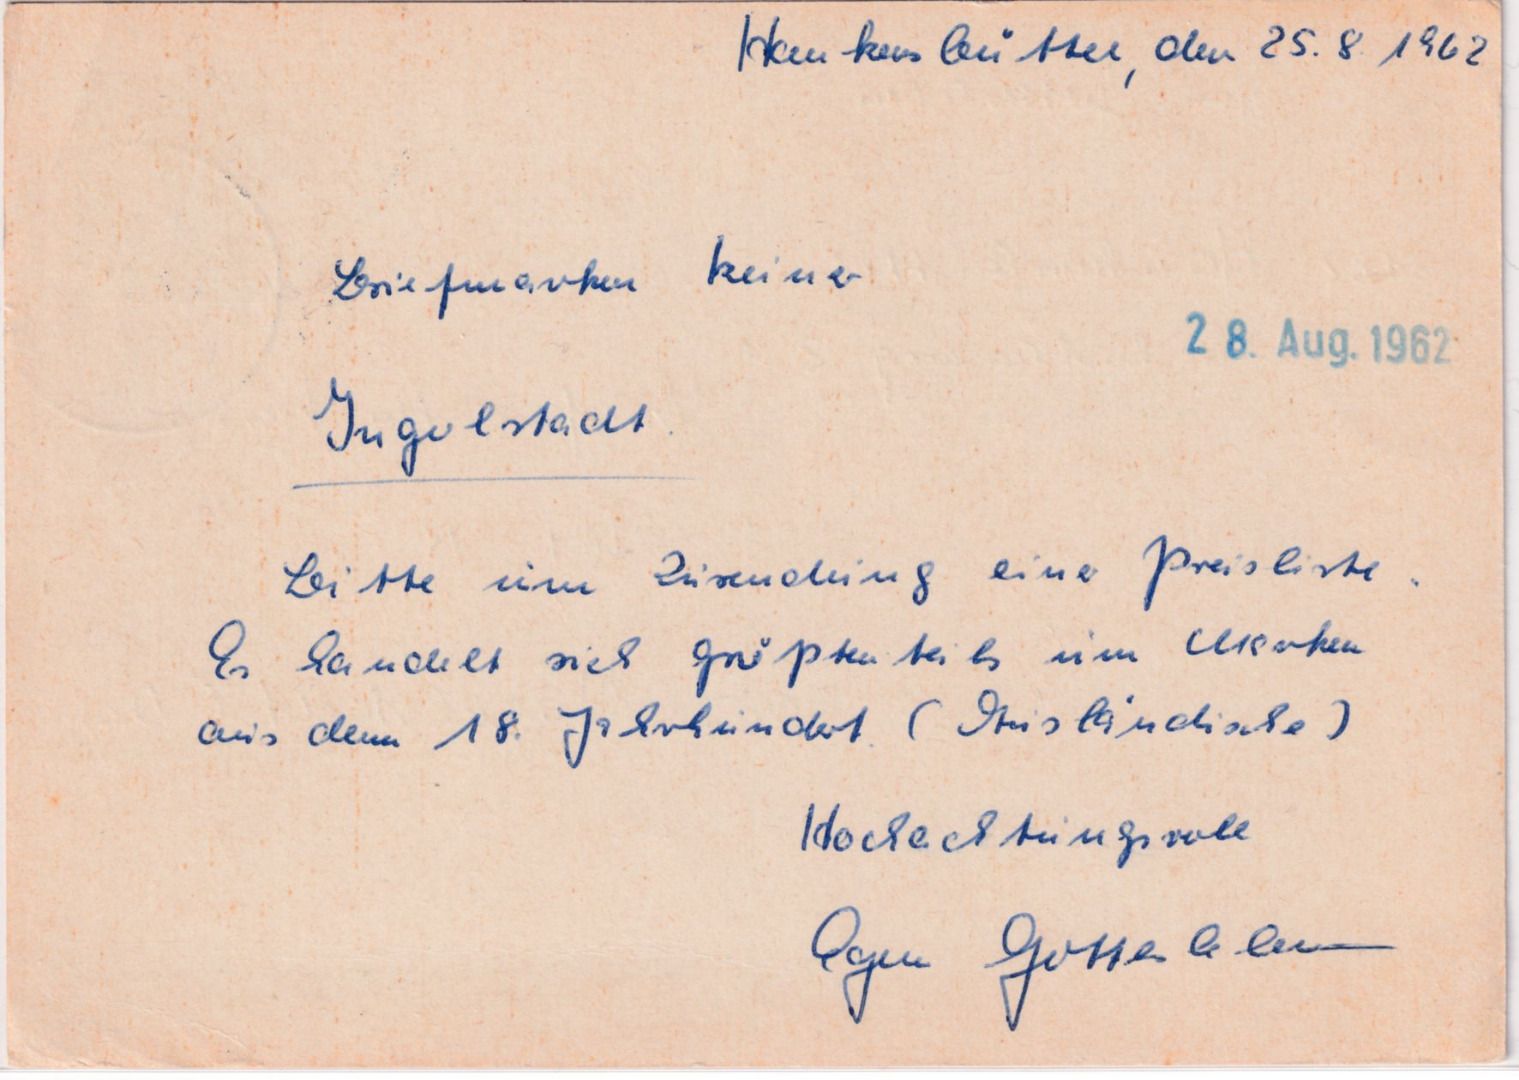 Hankensbüttel, den 25.8.1962
Briefmarken keiner
28. Aug. 1962
Ingolstadt.
Bitte um Zusendung einer Preisliste.
Es handelt sich größtenteils um Marken
aus dem 18. Jahrhundert. (Ausländische)
Hochachtungsvoll
Egon